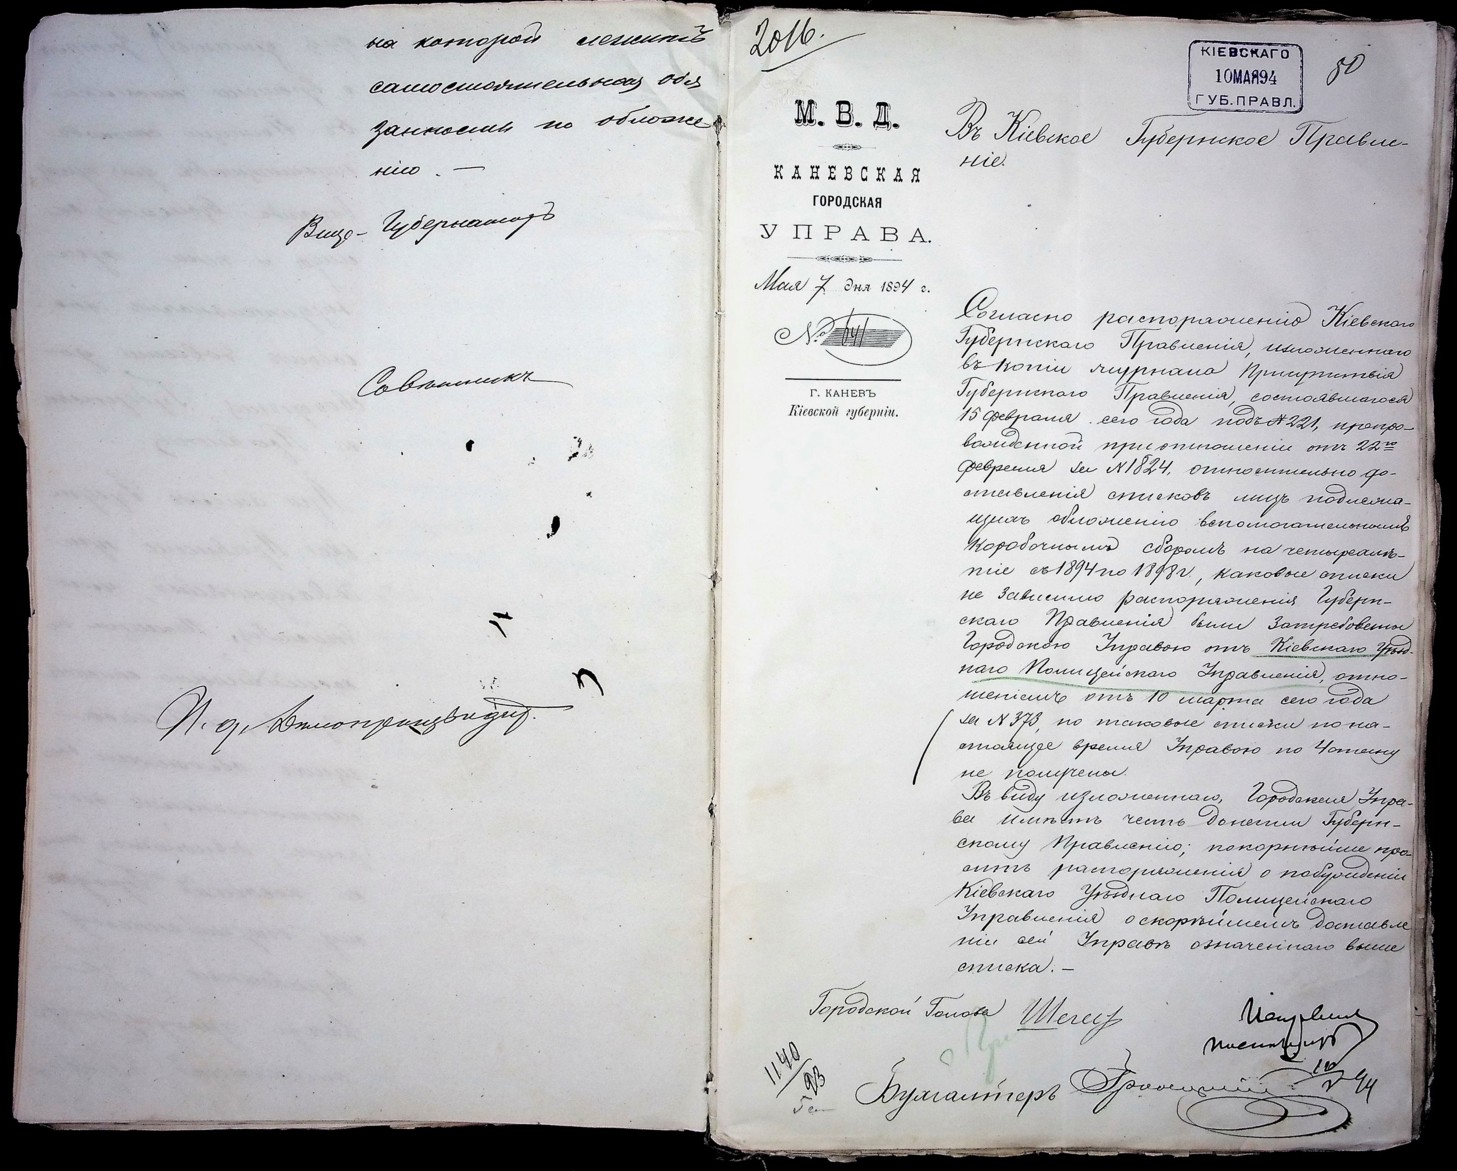 на которой лежитъ
самостоятельная обя
занность по обложе
нію. —
Вице-Губернаторъ
Совѣтникъ
И. д. Дѣлопроизводит.
2016.
КІЕВСКАГО
10 МАЯ 94
ГУБ. ПРАВЛ.
80
М. В. Д.
КАНЕВСКАЯ
ГОРОДСКАЯ
УПРАВА.
Мая 7 дня 1894 г.
№ 641
Г. КАНЕВЪ
Кіевской губерніи.
Въ Кіевское Губернское Правле-
ніе.
Согласно распоряженію Кіевскаго
Губернскаго Правленія, изложеннаго
въ копіи журнала Присутствія
Губернскаго Правленія, состоявшагося
15 февраля сего года подъ № 221, препро-
вожденной при отношеніи отъ 22го
февраля за № 1824, относительно до-
ставленія списковъ лицъ подлежа-
щихъ обложенію вспомогательнымъ
коробочнымъ сборомъ на четырехлѣ-
тіе съ 1894 по 1898 г, каковые списки
не зависимо распоряженія Губерн-
скаго Правленія были затребованы
Городскою Управою отъ Кіевскаго Уѣзд-
наго Полицейскаго Управленія, отно-
шеніемъ отъ 10 марта сего года
за № 373, но таковые списки по на-
стоящее время Управою по
не получены.
Въ виду изложеннаго, Городская Упра-
ва имѣетъ честь донести Губерн-
скому Правленію; покорнѣйше про
ситъ распоряженія о побужденіи
Кіевскаго Уѣзднаго Полицейскаго
Управленія о скорѣйшемъ доставле
ніи сей Управѣ означеннаго выше
списка. —
Городской Голова
1140
93
Бухгалтеръ